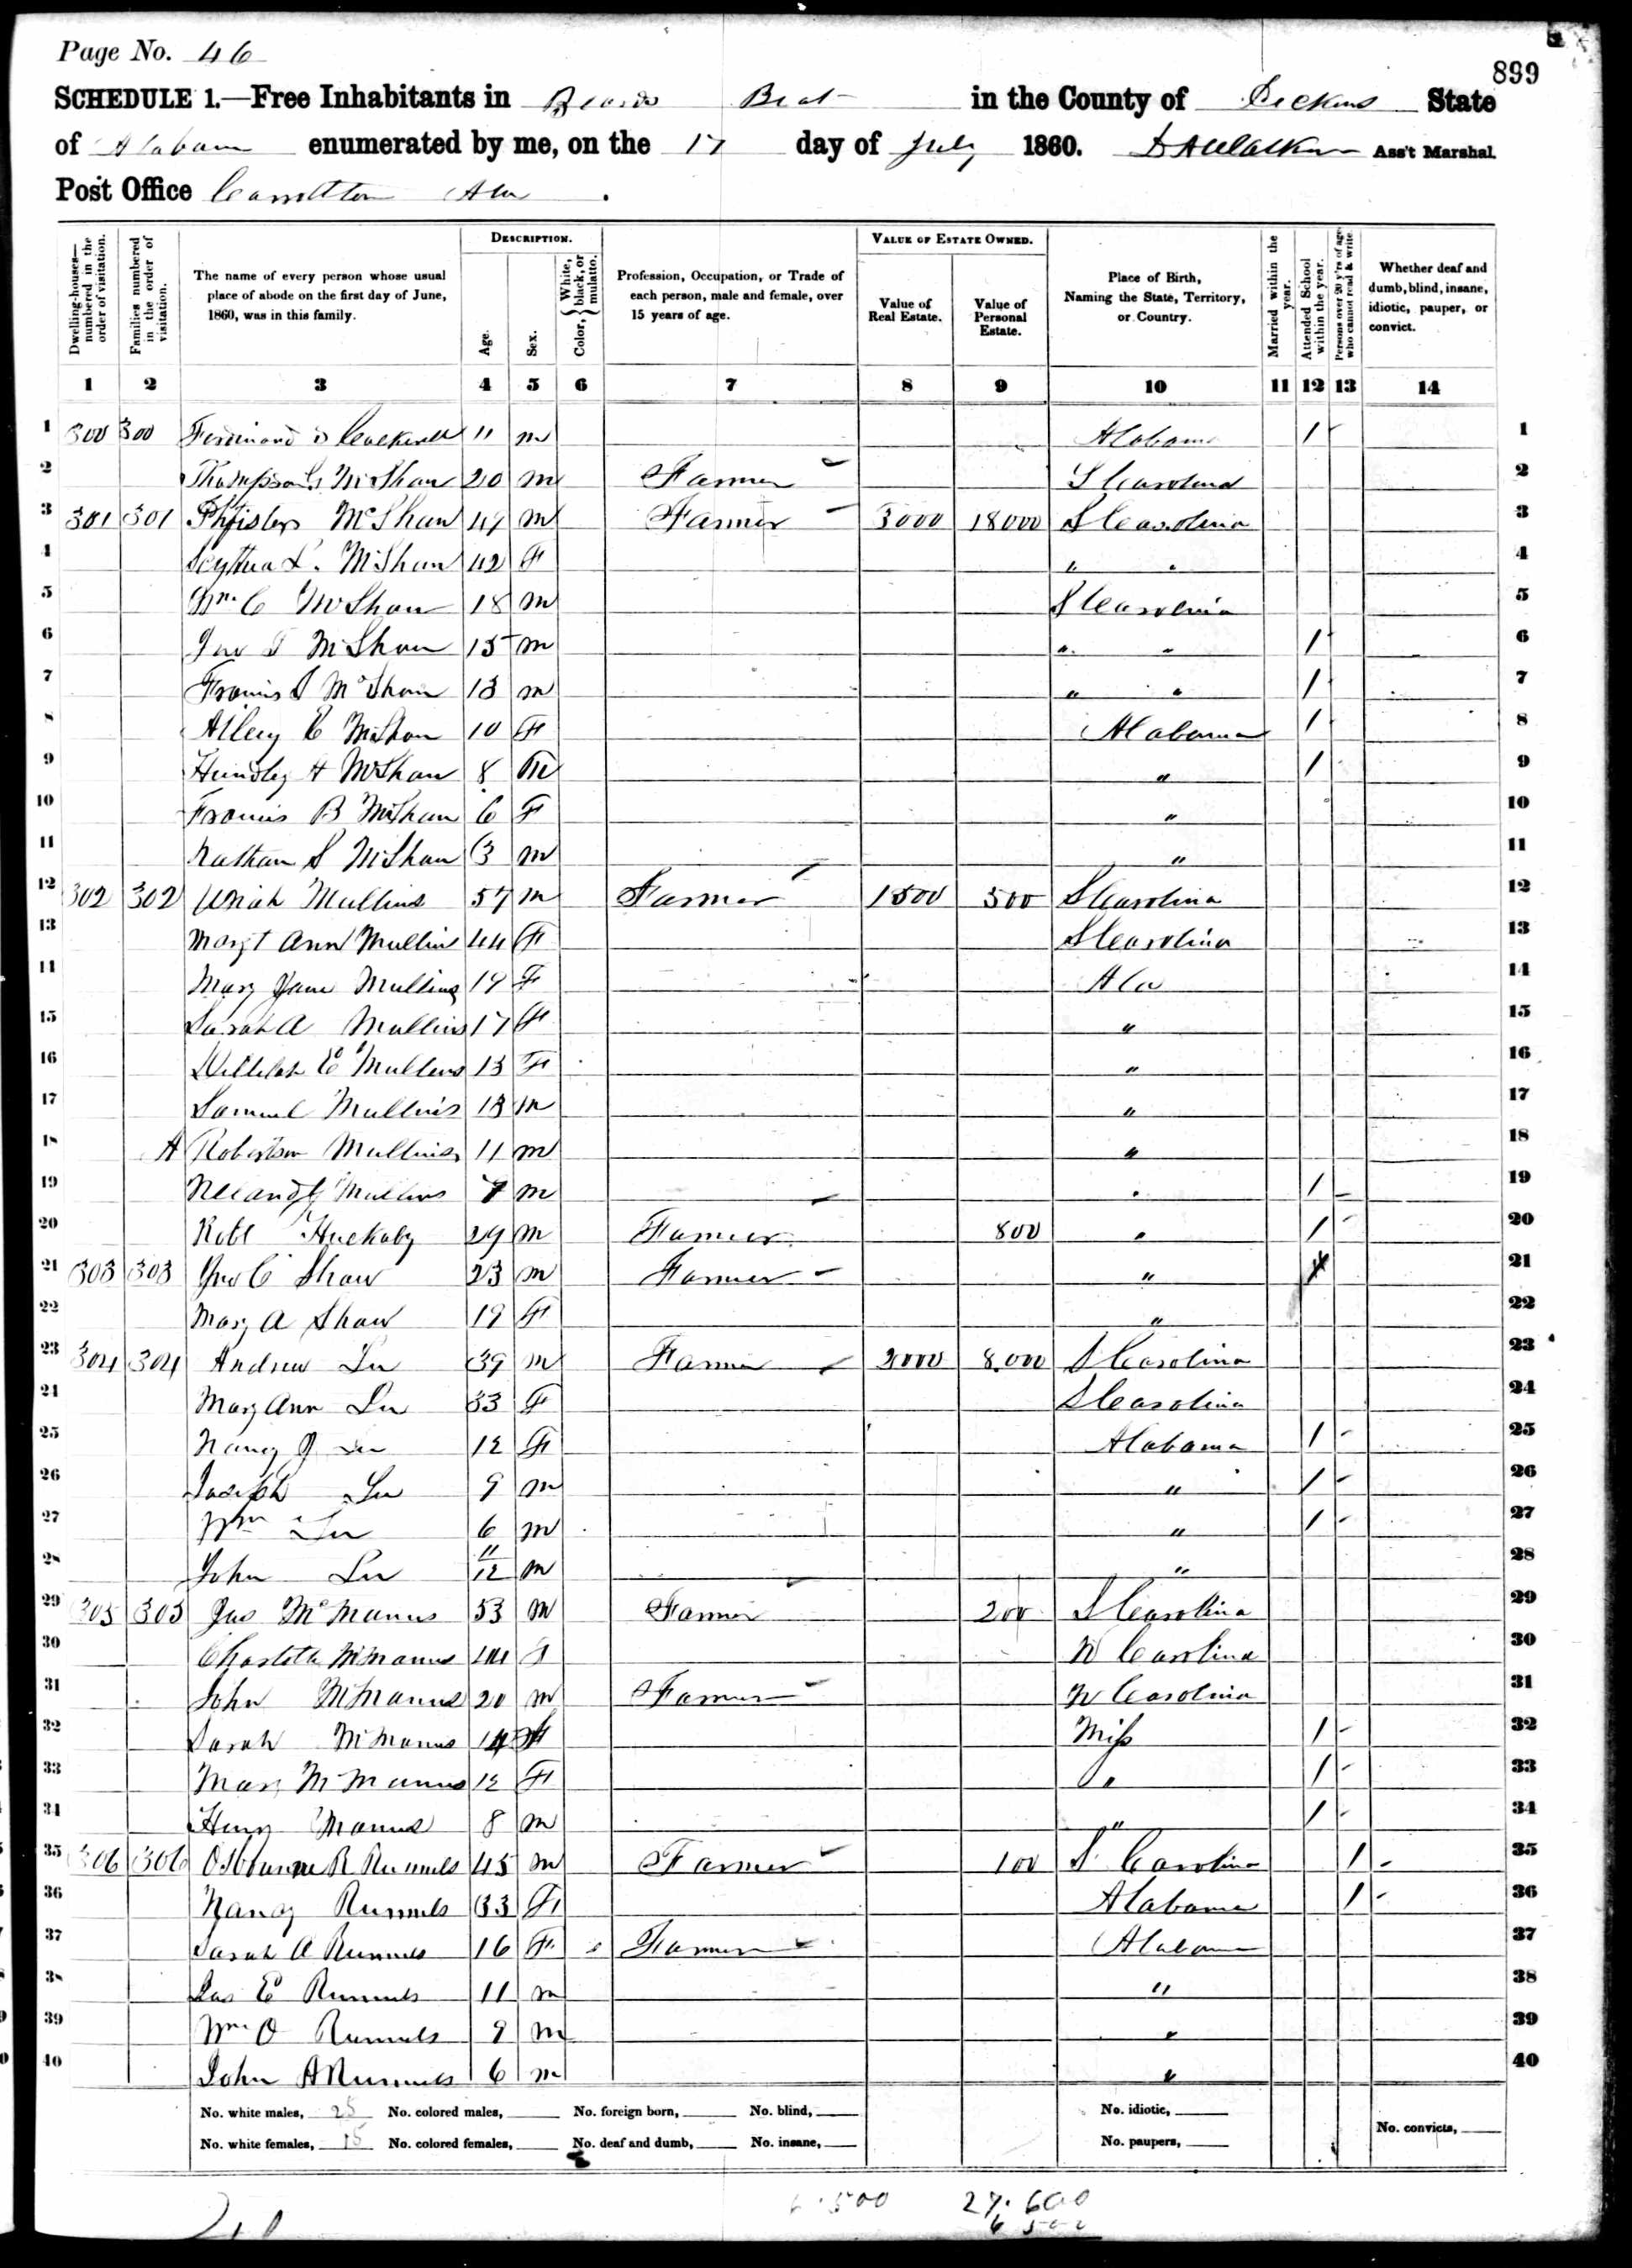 Page No. 46
899
SCHEDULE 1.—Free Inhabitants in Beards Beat in the County of Pickens State
of Alabama enumerated by me, on the 17 day of July 1860. Ass't Marshal.
Post Office Carrollton Ala.
DESCRIPTION. VALUE OF ESTATE OWNED.
Dwelling-houses—numbered in the order of visitation. Families numbered in the order of visitation. The name of every person whose usual place of abode on the first day of June, 1860, was in this family. Age. Sex. Color, { White, black, or mulatto. Profession, Occupation, or Trade of each person, male and female, over 15 years of age. Value of Real Estate. Value of Personal Estate. Place of Birth, Naming the State, Territory, or Country. Married within the year. Attended School within the year. Persons over 20 y'rs of age who cannot read & write. Whether deaf and dumb, blind, insane, idiotic, pauper, or convict.
1 2 3 4 5 6 7 8 9 10 11 12 13 14
1 300 300 11 m Alabama 1 1
2 McShan 20 m Farmer S Carolina 2
3 301 301 McShan 47 m Farmer 3000 18000 S Carolina 3
4 McShan 42 F " " 4
5 Wm. C McShan 18 m S Carolina 5
6 Jno T McShan 15 m " " 1 6
7 Francis S McShan 13 m " " 1 7
8 McShan 10 F Alabama 1 8
9 McShan 8 m " 1 9
10 Francis B McShan 6 F " 10
11 Nathan S McShan 3 m " 11
12 302 302 Uriah Mullins 57 m Farmer 1500 500 S Carolina 12
13 Margt Ann Mullins 44 F S Carolina 13
14 Mary Jane Mullins 19 F Ala 14
15 Sarah A Mullins 17 F " 15
16 E Mullins 13 F " 16
17 Samuel Mullins 13 m " 17
18 A Robertson Mullins 11 m " 18
19 Mullins 7 m " 1 19
20 Robt Huckaby 29 m Farmer 800 " 1 20
21 303 303 Jno C Shaw 23 m Farmer " 21
22 Mary A Shaw 19 F " 22
23 304 304 Andrew Lee 39 m Farmer 2000 8,000 S Carolina 23
24 Mary Ann Lee 33 F S Carolina 24
25 Nancy J Lee 12 F Alabama 1 25
26 Joseph Lee 9 m " 1 26
27 Wm Lee 6 m " 1 27
28 John Lee 11/12 m " 28
29 305 305 Jas McManus 53 m Farmer 200 S Carolina 29
30 McManus 44 F N Carolina 30
31 John McManus 20 m Farmer N Carolina 31
32 Sarah McManus 14 F Miss 1 32
33 Mary McManus 12 F " 1 33
34 Henry Manus 8 m " 1 34
35 306 306 Osbourne R Runnels 45 m Farmer 100 S Carolina 1 35
36 Nancy Runnels 33 F Alabama 1 36
37 Sarah A Runnels 16 F Farmer Alabama 37
38 Jas E Runnels 11 m " 38
39 Wm O Runnels 9 m " 39
40 John A Runnels 6 m " 40
No. white males, 25 No. colored males, No. foreign born, No. blind, No. idiotic, No. convicts,
No. white females, 15 No. colored females, No. deaf and dumb, No. insane, No. paupers,
6.500 27.600
6 500